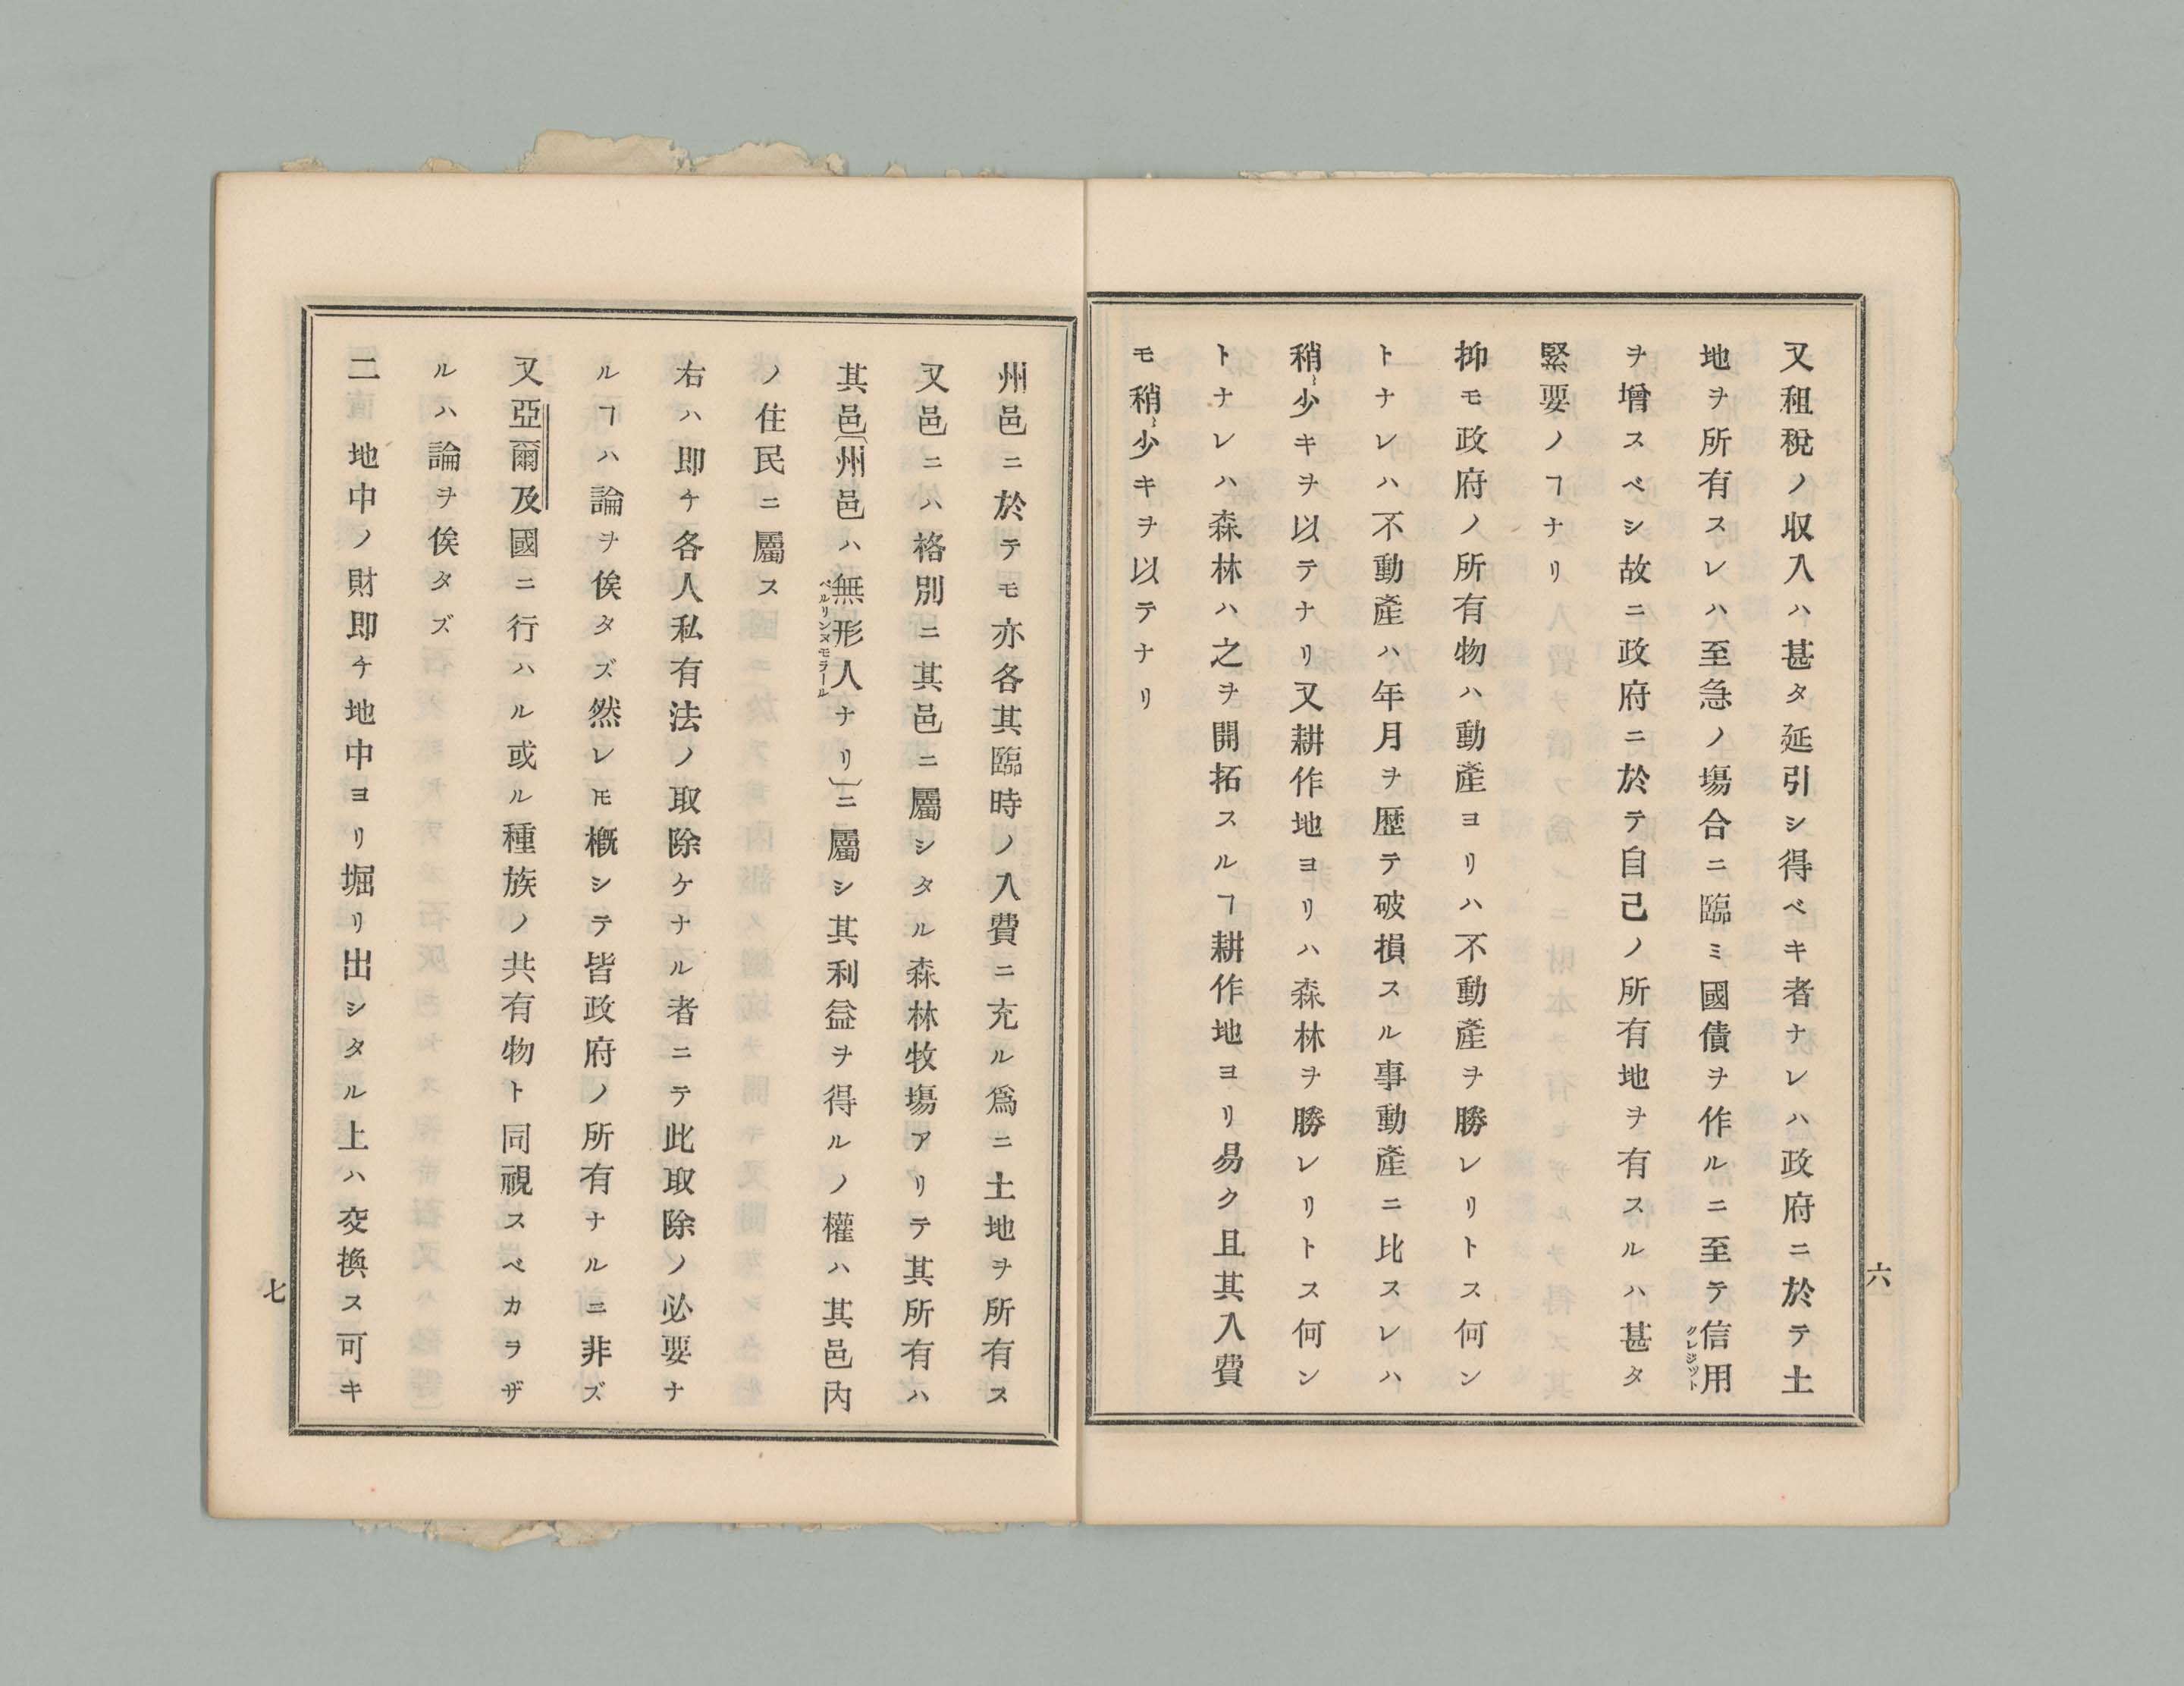 又租税ノ収入ハ甚タ延引シ得ベキ者ナレハ政府ニ於テ土
地ヲ所有スレハ至急ノ塲合ニ臨ミ國債ヲ作ルニ至テ信用クレジット
ヲ増スベシ故ニ政府ニ於テ自己ノ所有地ヲ有スルハ甚タ
緊要ノヿナリ
抑モ政府ノ所有物ハ動產ヨリハ不動產ヲ勝レリトス何ン
トナレハ不動產ハ年月ヲ歴テ破損スル事動產ニ比スレハ
稍〻少キヲ以テナリ又耕作地ヨリハ森林ヲ勝レリトス何ン
トナレハ森林ハ之ヲ開拓スルヿ耕作地ヨリ易ク且其入費
モ稍〻少キヲ以テナリ
六
州邑ニ於テモ亦各其臨時ノ入費ニ充ル爲ニ土地ヲ所有ス
又邑ニハ格別ニ其邑ニ屬シタル森林牧塲アリテ其所有ハ
其邑〔州邑ハ無形人ペルソンヌモラールナリ〕ニ屬シ其利益ヲ得ルノ權ハ其邑内
ノ住民ニ屬ス
右ハ即チ各人私有法ノ取除ケナル者ニテ此取除ノ必要ナ
ルヿハ論ヲ俟タズ然レ𪜈概シテ皆政府ノ所有ナルニ非ズ
又亞爾及國ニ行ハルル或ル種族ノ共有物ト同視スベカラザ
ルハ論ヲ俟タズ
二 地中ノ財即チ地中ヨリ堀リ出シタル上ハ交換ス可キ
七